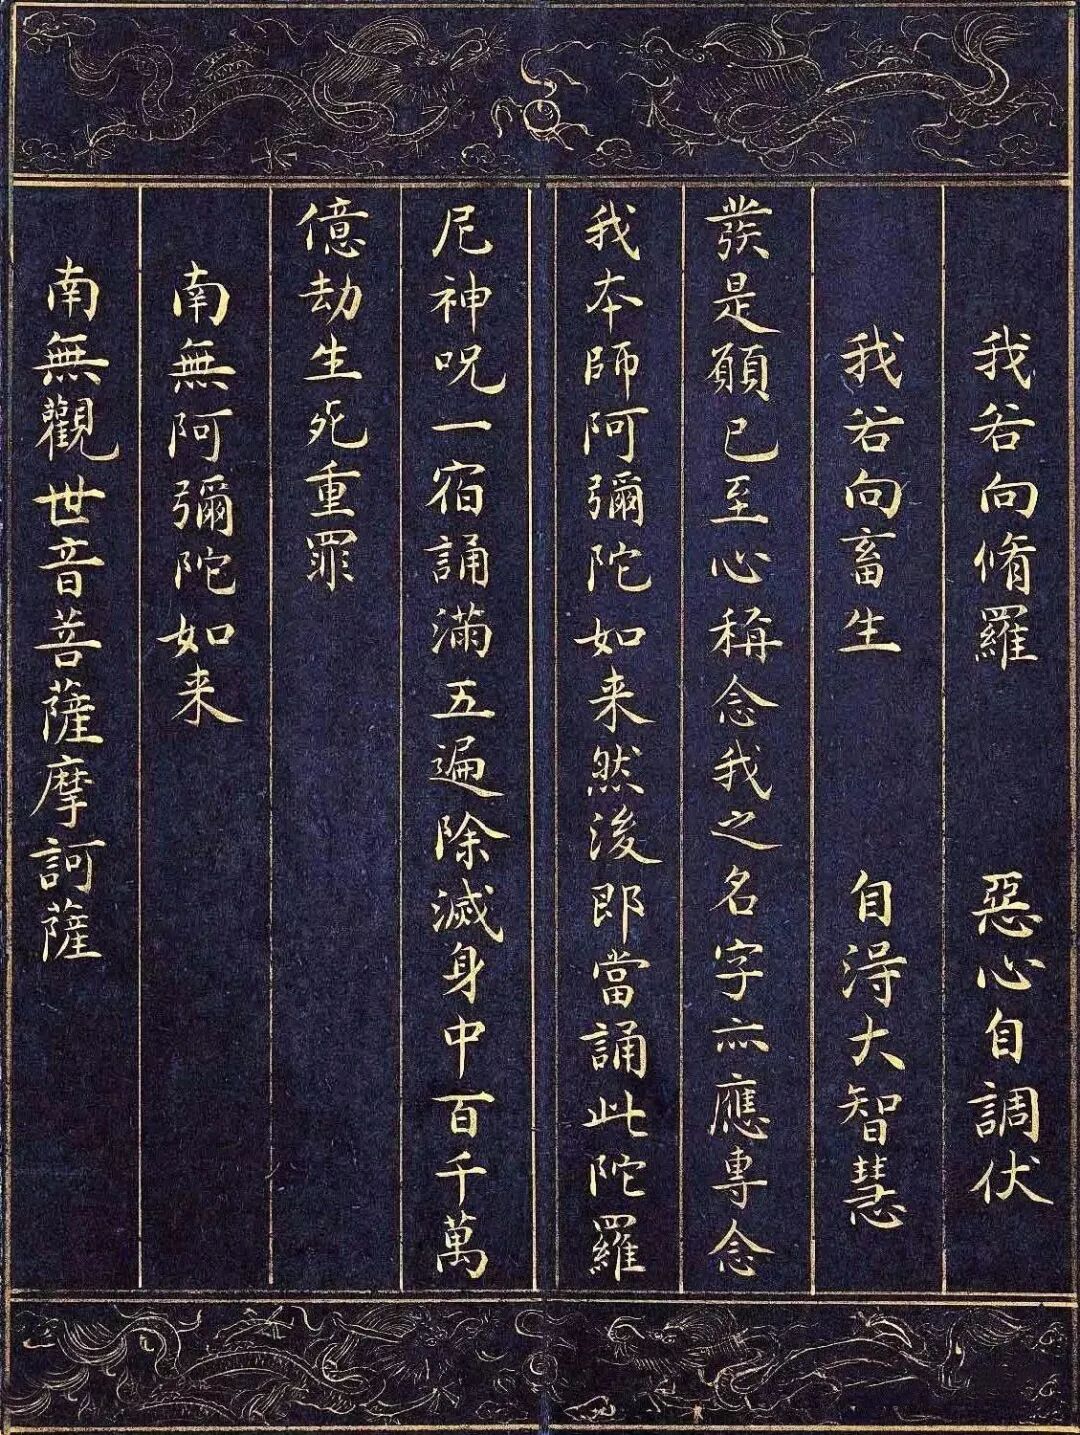 我若向脩羅 惡心自調伏
我若向畜生 自得大智慧
發是願已至心稱念我之名字亦應專念
我本師阿彌陀如来然後即當誦此陀羅
尼神呪一宿誦滿五遍除滅身中百千萬
億劫生死重罪
南無阿彌陀如来
南無觀世音菩薩摩訶薩